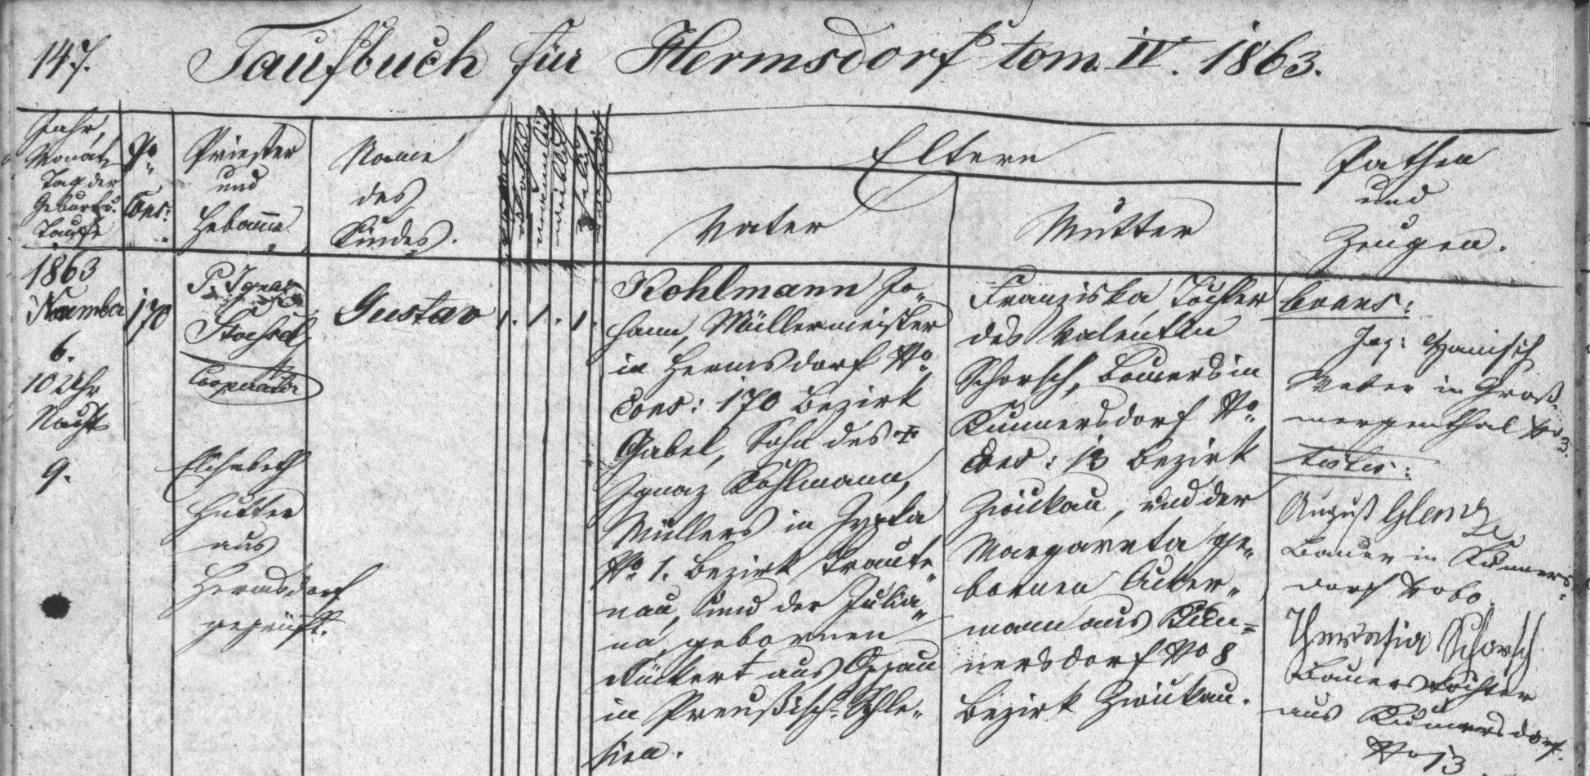 147.
Taufbuch für Hermsdorf tom. IV. 1863.
Jahr,
Monat,
Tag der
Geburts
Taufe
No
Cons:
Priester
und
Hebamme
Name
des
Kindes.
Eltern
Vater
Mutter
Pathen
und
Zeugen.
1863
November
6.
10 Uhr
Nachts
9.
170
P. Ignaz
Stoehsel
Cooperator
Elisabeth
Hutter
aus
Hermsdorf
geprüft.
Gustav
1. 1. 1.
Kohlmann Jo-
hann, Müllermeister
in Hermsdorf No
Cons: 170 Bezirk
Gabel, Sohn des +
Ignaz Kohlmann,
Müllers in
No 1. Bezirk Traute-
nau, und der Julia-
na, gebornen
Rückert aus
in Preußisch-Schle-
sien.
Franziska, Tochter
des Valentin
Schorsch, Bauers in
Kunnersdorf No
Cons: 13 Bezirk
Zwickau, und der
Margareta ge-
bornen Acker-
mann aus Kun-
nersdorf No 8
Bezirk Zwickau.
Levans:
Jog: Hanisch
Weber in Groß-
mergenthal No 3.
testes:
August Glenz
Bauer in Kunners-
dorf No 60
Theresia Schorsch
Bauers Tochter
aus Kunnersdorf.
No 13